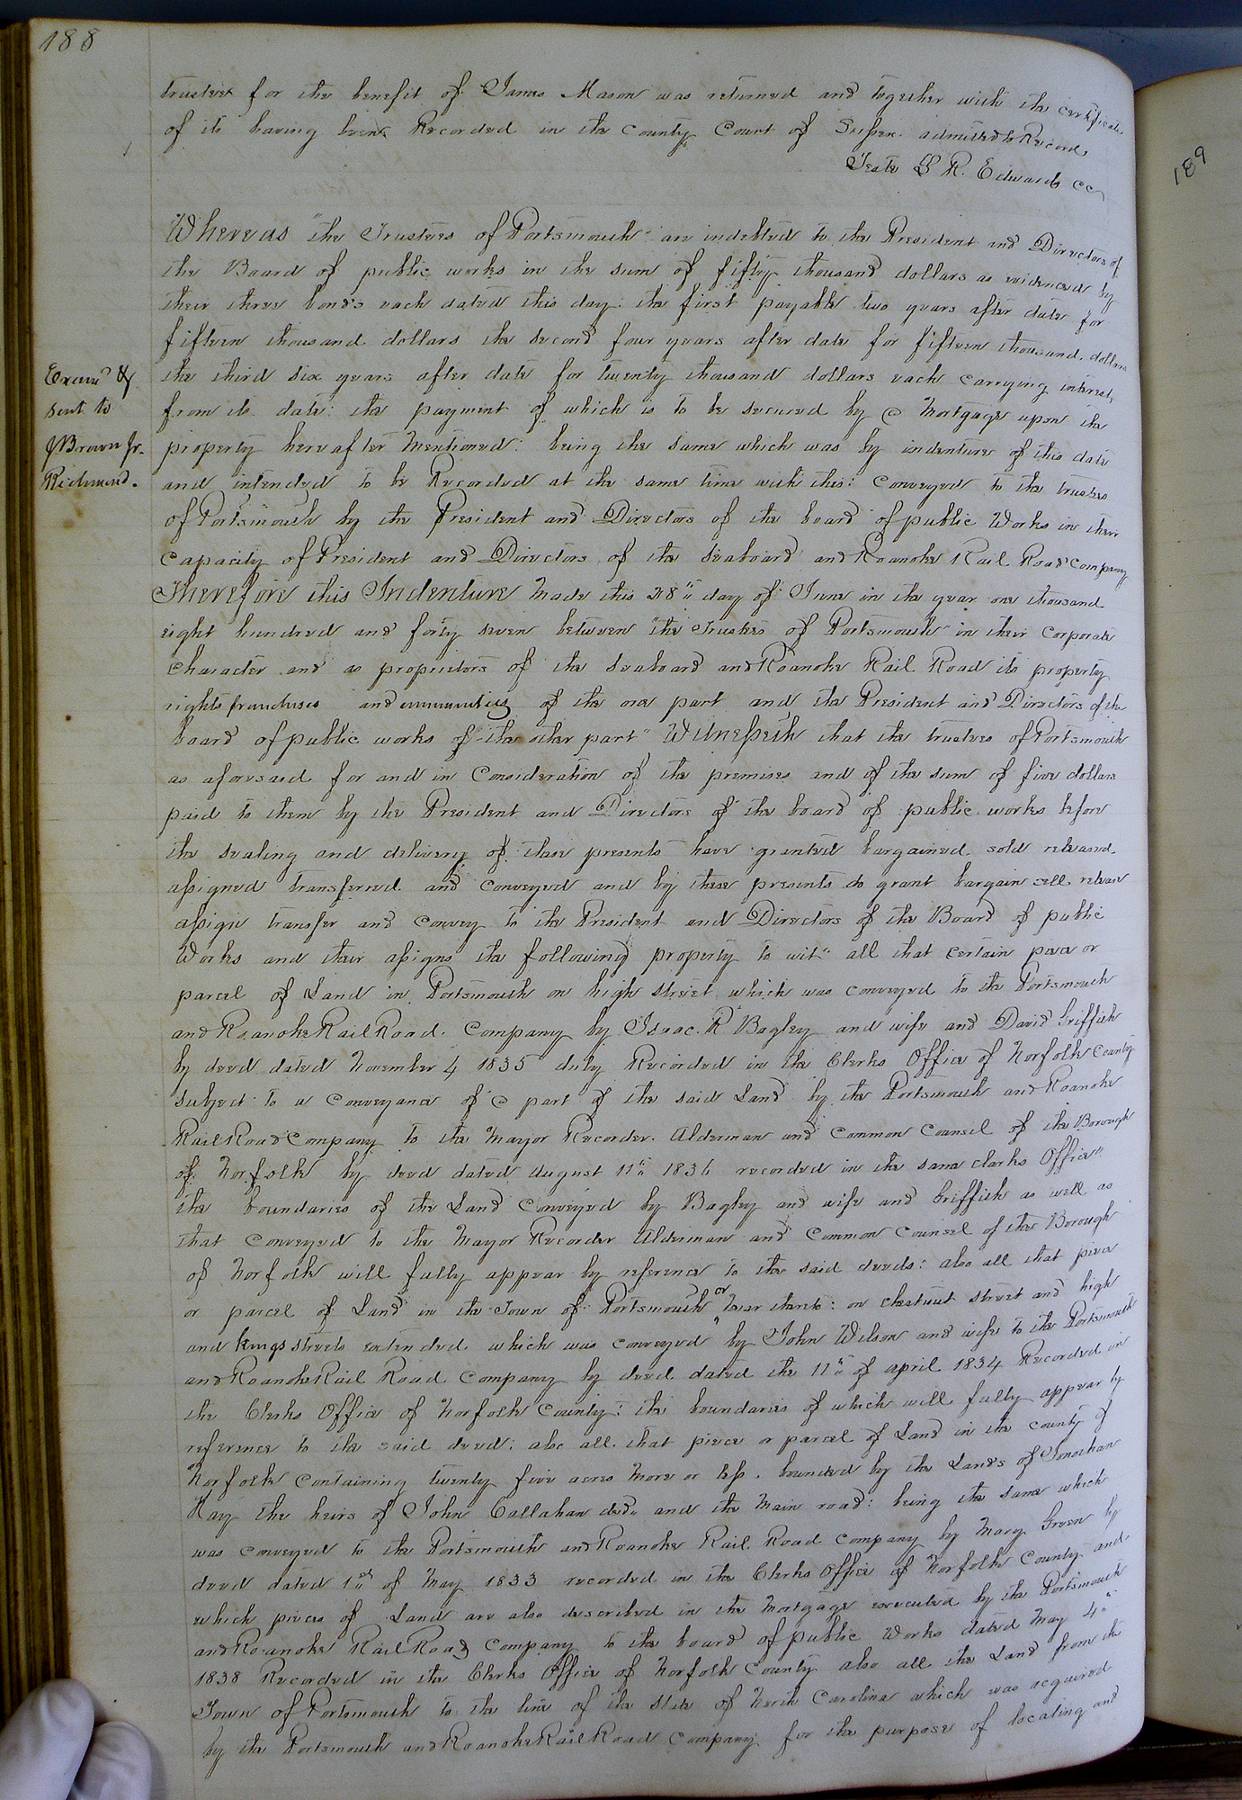 188
trustees for the benefit of James Mason was returned and together with the certificate
of its having been Recorded in the county Court of Sussex admitted to Record
Teste L R. Edwards cc
Whereas "the Trustees of Portsmouth" are indebted to the President and Directors of
the Board of public works in the sum of fifty thousand dollars as evidenced by
their three bonds each dated this day: the first payable two years after date for
fifteen thousand dollars the second four years after date for fifteen thousand dollars
the third six years after date for twenty thousand dollars each carrying interest
from its date: the payment of which is to be secured by a Mortgage upon the
property hereafter Mentioned: being the same which was by indenture of this date
and intended to be Recorded at the same time with this: Conveyed to the trustees
of Portsmouth by the President and Directors of the board of public Works in their
capacity of President and Directors of the Seaboard and Roanoke Rail Road Company
Therefore this Indenture Made this 28" day of June in the year one thousand
eight hundred and forty seven between "the Trustees of Portsmouth" in their Corporate
Character and as proprietors of the Seaboard and Roanoke Rail Road its property
rights franchises and immunities of the one part and the President and Directors of the
board of public works of "the other part" Witnesseth that the trustees of Portsmouth
as aforesaid for and in Consideration of the premises and of the sum of five dollars
paid to them by the President and Directors of the board of public works before
the sealing and delivery of these presents have granted bargained sold released
assigned transferred and conveyed and by these presents do grant bargain sell release
assign transfer and convey to the President and Directors of the Board of public
Works and their assigns the following property to wit" all that certain piece or
parcel of Land in Portsmouth on high street which was conveyed to the Portsmouth
and Roanoke Rail Road Company by Isaac. R Bagley and wife and David Griffith
by deed dated November 4 1835 duly Recorded in the Clerks Office of Norfolk County
subject to a Conveyance of a part of the said Land by the Portsmouth and Roanoke
Rail Road Company to the Mayor Recorder. Alderman and Common Counsel of the Borough
of Norfolk by deed dated August 11" 1836 recorded in the same clerks Office"
the boundaries of the Land Conveyed by Bagley and wife and Griffith as well as
that conveyed to the Mayor Recorder Alderman and Common Counsel of the Borough
of Norfolk will fully appear by reference to the said deeds: also all that piece
or parcel of Land in the Town of Portsmouth or near thereto: on chestnut street and high
and kings streets extended which was conveyed by John Wilson and wife to the Portsmouth
and Roanoke Rail Road Company by deed dated the 11" of april 1834 Recorded in
the Clerks Office of Norfolk County: the boundaries of which will fully appear by
reference to the said deed: also all that piece or parcel of Land in the county of
Norfolk containing twenty five acres More or less. bounded by the Lands of
the heirs of John Callahan decd. and the Main road: being the same which
was conveyed to the Portsmouth and Roanoke Rail Road company by Mary Green by
deed dated 1st of May 1833 recorded in the Clerks Office of Norfolk County and
which pieces of Land are also described in the Mortgage executed by the Portsmouth
and Roanoke Rail Road Company to the board of public Works dated May 4"
1838 Recorded in the Clerks Office of Norfolk County also all the Land from the
Town of Portsmouth to the line of the State of North Carolina which was acquired
by the Portsmouth and Roanoke Rail Road Company for the purpose of locating and
Examd &
sent to
J Brown Jr.
Richmond.
189